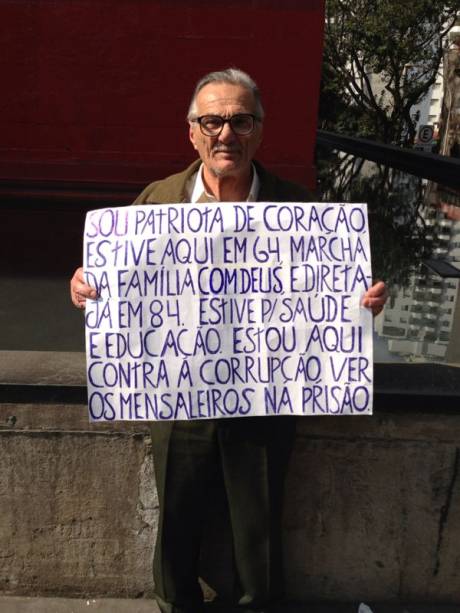 SOU PATRIOTA DE CORAÇÃO
ESTIVE AQUI EM 64 MARCHA
DA FAMÍLIA COM DEUS, E DIRETA-
JÁ EM 84. ESTIVE P/ SAÚDE
E EDUCAÇÃO. ESTOU AQUI
CONTRA A CORRUPÇÃO, VER
OS MENSALEIROS NA PRISÃO.